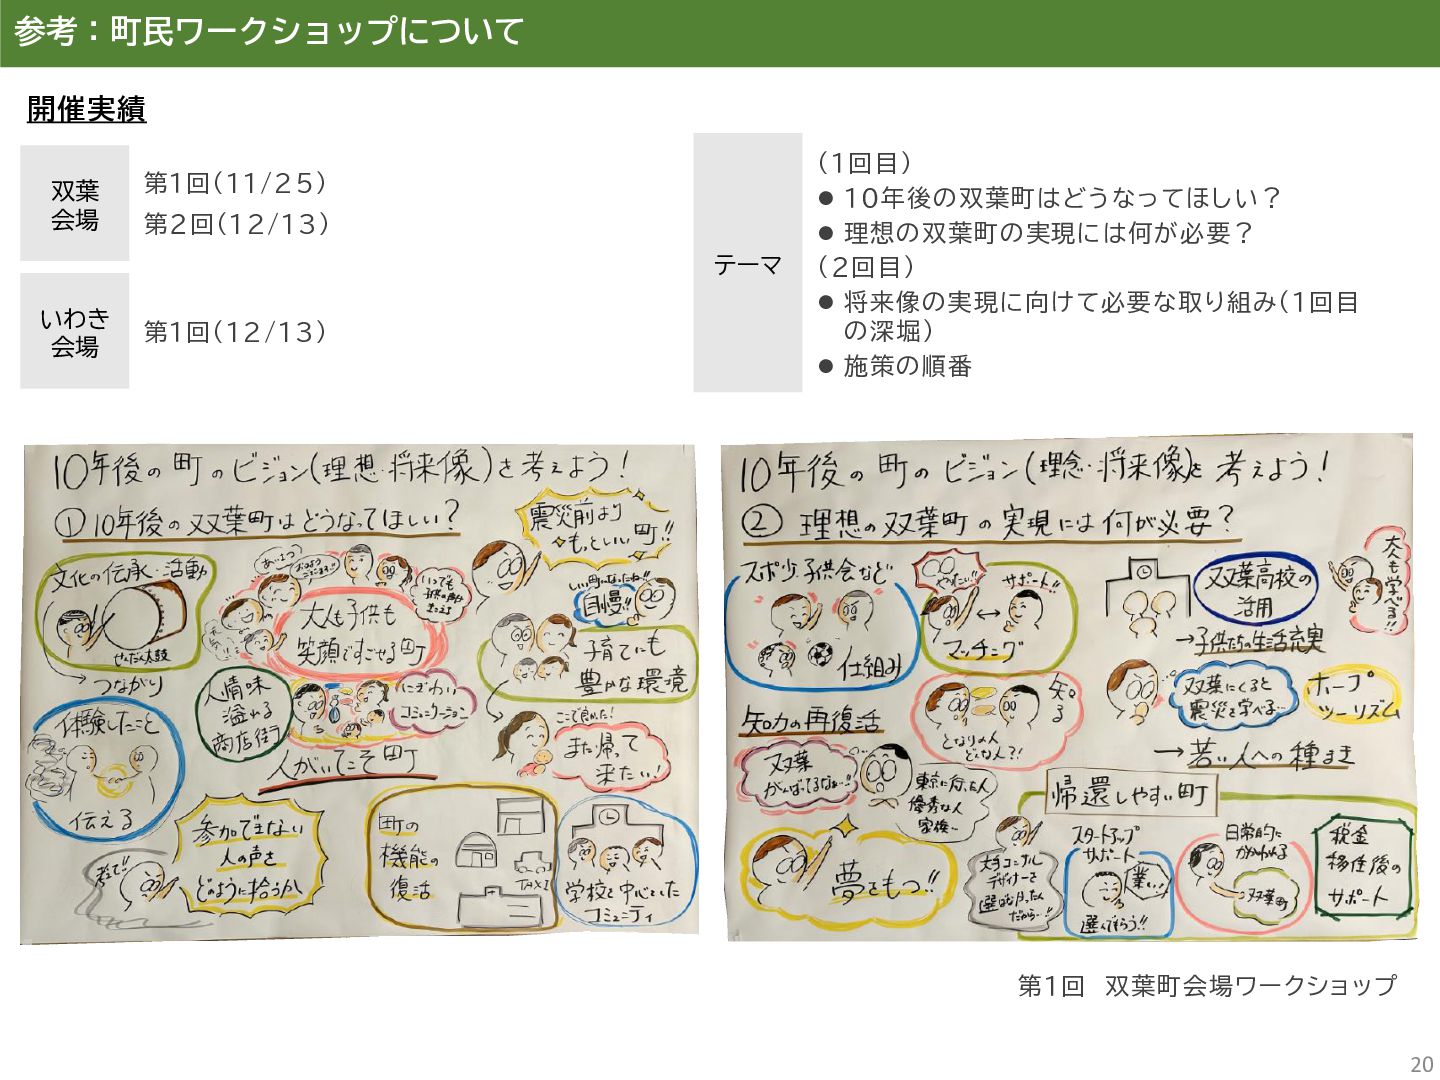 参考：町民ワークショップについて
開催実績
双葉
会場
第1回（11/25）
第2回（12/13）
いわき
会場
第1回（12/13）
テーマ
（1回目）
● 10年後の双葉町はどうなってほしい？
● 理想の双葉町の実現には何が必要？
（2回目）
● 将来像の実現に向けて必要な取り組み（1回目
の深堀）
● 施策の順番
10年後の町のビジョン（理想・将来像）を考えよう！
①10年後の双葉町はどうなってほしい？
震災前より
もっといい町!!
文化の伝承・活動
せんだん太鼓
つながり
大人も子供も
笑顔ですごせる町
自慢!!
子育てにも
豊かな環境
人情味
溢れる
商店街
にぎわい
コミュニケーション
人がいてこそ町
ここで良かった！
また帰って
来たい！
体験したこと
伝える
参加できない
人の声を
どのように拾うか
町の
機能の
復活
TAXI
学校を中心とした
コミュニティ
10年後の町のビジョン（理念・将来像）を考えよう！
② 理想の双葉町の実現には何が必要？
スポ少・子供会など
仕組み
サポート!!
マッチング
双葉高校の
活用
→子供たちの生活充実
大人も学べる!!
知る
となりの人
どんな人？！
双葉にくると
震災を学べる…
ホープ
ツーリズム
→若い人への種まき
知力の再復活
双葉
がんばってるなぁ…!!
東京に行った人
優秀な人
家族…
帰還しやすい町
夢をもつ!!
スタートアップ
サポート
業…
選んでもらう!!
日常的に
かかわれる
双葉町
税金
移住後の
サポート
第1回　双葉町会場ワークショップ
20